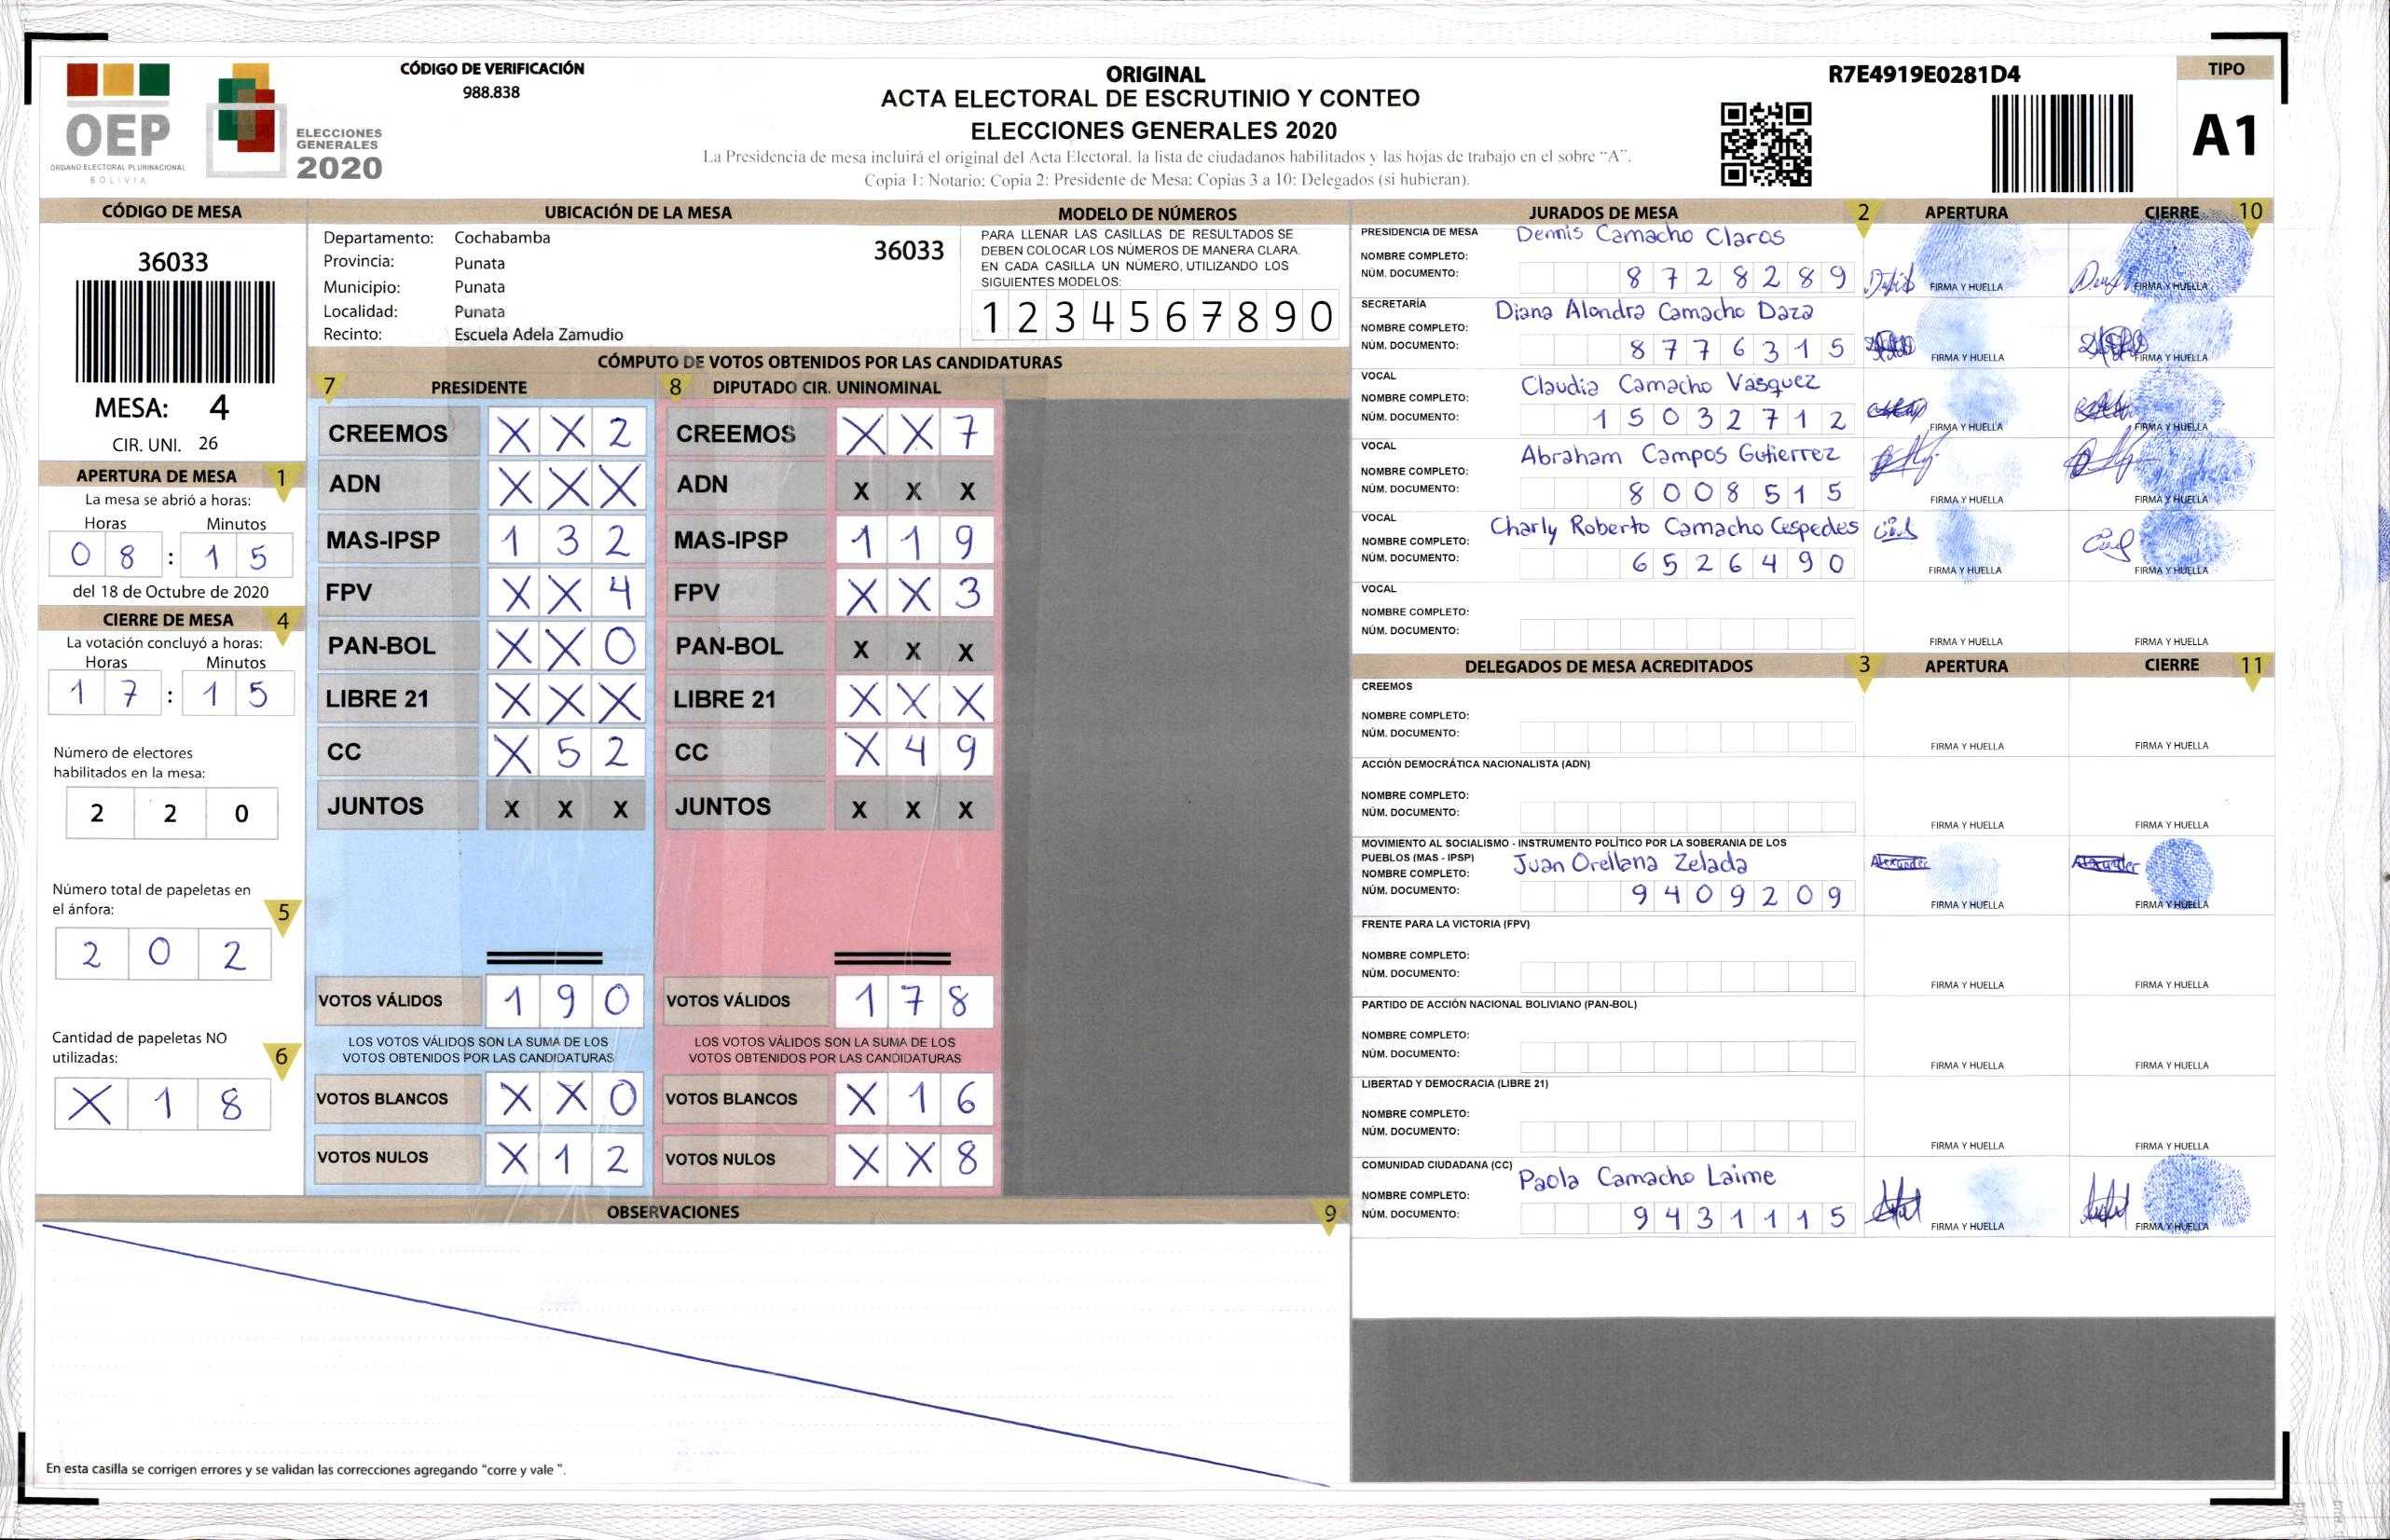 OEP
ÓRGANO ELECTORAL PLURINACIONAL
BOLIVIA
ELECCIONES
GENERALES
2020
CÓDIGO DE VERIFICACIÓN
988.838
ORIGINAL
ACTA ELECTORAL DE ESCRUTINIO Y CONTEO
ELECCIONES GENERALES 2020
La Presidencia de mesa incluirá el original del Acta Electoral, la lista de ciudadanos habilitados y las hojas de trabajo en el sobre "A".
Copia 1: Notario; Copia 2: Presidente de Mesa; Copias 3 a 10: Delegados (si hubieran).
R7E4919E0281D4
TIPO
A1
CÓDIGO DE MESA
36033
MESA: 4
CIR. UNI. 26
APERTURA DE MESA 1
La mesa se abrió a horas:
Horas Minutos
0 8 : 1 5
del 18 de Octubre de 2020
CIERRE DE MESA 4
La votación concluyó a horas:
Horas Minutos
1 7 : 1 5
Número de electores
habilitados en la mesa:
2 2 0
Número total de papeletas en
el ánfora: 5
2 0 2
Cantidad de papeletas NO
utilizadas: 6
X 1 8
UBICACIÓN DE LA MESA
Departamento: Cochabamba
36033
Provincia: Punata
Municipio: Punata
Localidad: Punata
Recinto: Escuela Adela Zamudio
MODELO DE NÚMEROS
PARA LLENAR LAS CASILLAS DE RESULTADOS SE
DEBEN COLOCAR LOS NÚMEROS DE MANERA CLARA.
EN CADA CASILLA UN NÚMERO, UTILIZANDO LOS
SIGUIENTES MODELOS:
1 2 3 4 5 6 7 8 9 0
CÓMPUTO DE VOTOS OBTENIDOS POR LAS CANDIDATURAS
7 PRESIDENTE 8 DIPUTADO CIR. UNINOMINAL
CREEMOS X X 2 CREEMOS X X 7
ADN X X X ADN X X X
MAS-IPSP 1 3 2 MAS-IPSP 1 1 9
FPV X X 4 FPV X X 3
PAN-BOL X X 0 PAN-BOL X X X
LIBRE 21 X X X LIBRE 21 X X X
CC X 5 2 CC X 4 9
JUNTOS X X X JUNTOS X X X
VOTOS VÁLIDOS 1 9 0 VOTOS VÁLIDOS 1 7 8
LOS VOTOS VÁLIDOS SON LA SUMA DE LOS LOS VOTOS VÁLIDOS SON LA SUMA DE LOS
VOTOS OBTENIDOS POR LAS CANDIDATURAS VOTOS OBTENIDOS POR LAS CANDIDATURAS
VOTOS BLANCOS X X 0 VOTOS BLANCOS X 1 6
VOTOS NULOS X 1 2 VOTOS NULOS X X 8
OBSERVACIONES 9
En esta casilla se corrigen errores y se validan las correcciones agregando "corre y vale ".
JURADOS DE MESA 2 APERTURA CIERRE 10
PRESIDENCIA DE MESA Dennis Camacho Claros
NOMBRE COMPLETO:
NÚM. DOCUMENTO: 8 7 2 8 2 8 9 FIRMA Y HUELLA FIRMA Y HUELLA
SECRETARÍA Diana Alondra Camacho Daza
NOMBRE COMPLETO:
NÚM. DOCUMENTO: 8 7 7 6 3 1 5 FIRMA Y HUELLA FIRMA Y HUELLA
VOCAL Claudia Camacho Vasquez
NOMBRE COMPLETO:
NÚM. DOCUMENTO: 1 5 0 3 2 7 1 2 FIRMA Y HUELLA FIRMA Y HUELLA
VOCAL Abraham Campos Gutierrez
NOMBRE COMPLETO:
NÚM. DOCUMENTO: 8 0 0 8 5 1 5 FIRMA Y HUELLA FIRMA Y HUELLA
VOCAL Charly Roberto Camacho Cespedes
NOMBRE COMPLETO:
NÚM. DOCUMENTO: 6 5 2 6 4 9 0 FIRMA Y HUELLA FIRMA Y HUELLA
VOCAL
NOMBRE COMPLETO:
NÚM. DOCUMENTO: FIRMA Y HUELLA FIRMA Y HUELLA
DELEGADOS DE MESA ACREDITADOS 3 APERTURA CIERRE 11
CREEMOS
NOMBRE COMPLETO:
NÚM. DOCUMENTO: FIRMA Y HUELLA FIRMA Y HUELLA
ACCIÓN DEMOCRÁTICA NACIONALISTA (ADN)
NOMBRE COMPLETO:
NÚM. DOCUMENTO: FIRMA Y HUELLA FIRMA Y HUELLA
MOVIMIENTO AL SOCIALISMO - INSTRUMENTO POLÍTICO POR LA SOBERANIA DE LOS
PUEBLOS (MAS - IPSP) Juan Orellana Zelada Alexander Alexander
NOMBRE COMPLETO:
NÚM. DOCUMENTO: 9 4 0 9 2 0 9 FIRMA Y HUELLA FIRMA Y HUELLA
FRENTE PARA LA VICTORIA (FPV)
NOMBRE COMPLETO:
NÚM. DOCUMENTO: FIRMA Y HUELLA FIRMA Y HUELLA
PARTIDO DE ACCIÓN NACIONAL BOLIVIANO (PAN-BOL)
NOMBRE COMPLETO:
NÚM. DOCUMENTO: FIRMA Y HUELLA FIRMA Y HUELLA
LIBERTAD Y DEMOCRACIA (LIBRE 21)
NOMBRE COMPLETO:
NÚM. DOCUMENTO: FIRMA Y HUELLA FIRMA Y HUELLA
COMUNIDAD CIUDADANA (CC) Paola Camacho Laime
NOMBRE COMPLETO:
NÚM. DOCUMENTO: 9 4 3 1 1 1 5 FIRMA Y HUELLA FIRMA Y HUELLA